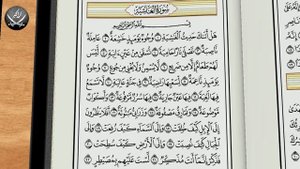 سُورَةُ الغَاشِيَةِ
بِسْمِ ٱللَّهِ ٱلرَّحْمَٰنِ ٱلرَّحِيمِ
هَلْ أَتَىٰكَ حَدِيثُ ٱلْغَٰشِيَةِ ١ وُجُوهٌ يَوْمَئِذٍ خَٰشِعَةٌ ٢ عَامِلَةٌ
نَّاصِبَةٌ ٣ تَصْلَىٰ نَارًا حَامِيَةً ٤ تُسْقَىٰ مِنْ عَيْنٍ ءَانِيَةٍ ٥ لَّيْسَ
لَهُمْ طَعَامٌ إِلَّا مِن ضَرِيعٍ ٦ لَّا يُسْمِنُ وَلَا يُغْنِي مِن جُوعٍ ٧ وُجُوهٌ
يَوْمَئِذٍ نَّاعِمَةٌ ٨ لِّسَعْيِهَا رَاضِيَةٌ ٩ فِي جَنَّةٍ عَالِيَةٍ ١٠ لَّا تَسْمَعُ
فِيهَا لَٰغِيَةً ١١ فِيهَا عَيْنٌ جَارِيَةٌ ١٢ فِيهَا سُرُرٌ مَّرْفُوعَةٌ ١٣ وَأَكْوَابٌ
مَّوْضُوعَةٌ ١٤ وَنَمَارِقُ مَصْفُوفَةٌ ١٥ وَزَرَابِيُّ مَبْثُوثَةٌ ١٦ أَفَلَا يَنظُرُونَ
إِلَى ٱلْإِبِلِ كَيْفَ خُلِقَتْ ١٧ وَإِلَى ٱلسَّمَآءِ كَيْفَ رُفِعَتْ ١٨ وَإِلَى
ٱلْجِبَالِ كَيْفَ نُصِبَتْ ١٩ وَإِلَى ٱلْأَرْضِ كَيْفَ سُطِحَتْ ٢٠
فَذَكِّرْ إِنَّمَآ أَنتَ مُذَكِّرٌ ٢١ لَّسْتَ عَلَيْهِم بِمُصَيْطِرٍ ٢٢